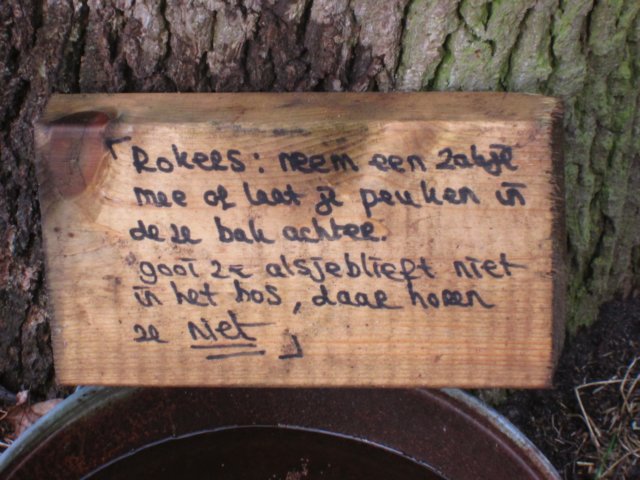 「Rokers: neem een zakje
mee of laat je peuken in
deze bak achter.
gooi ze alsjeblieft niet
in het bos, daar horen
ze niet」